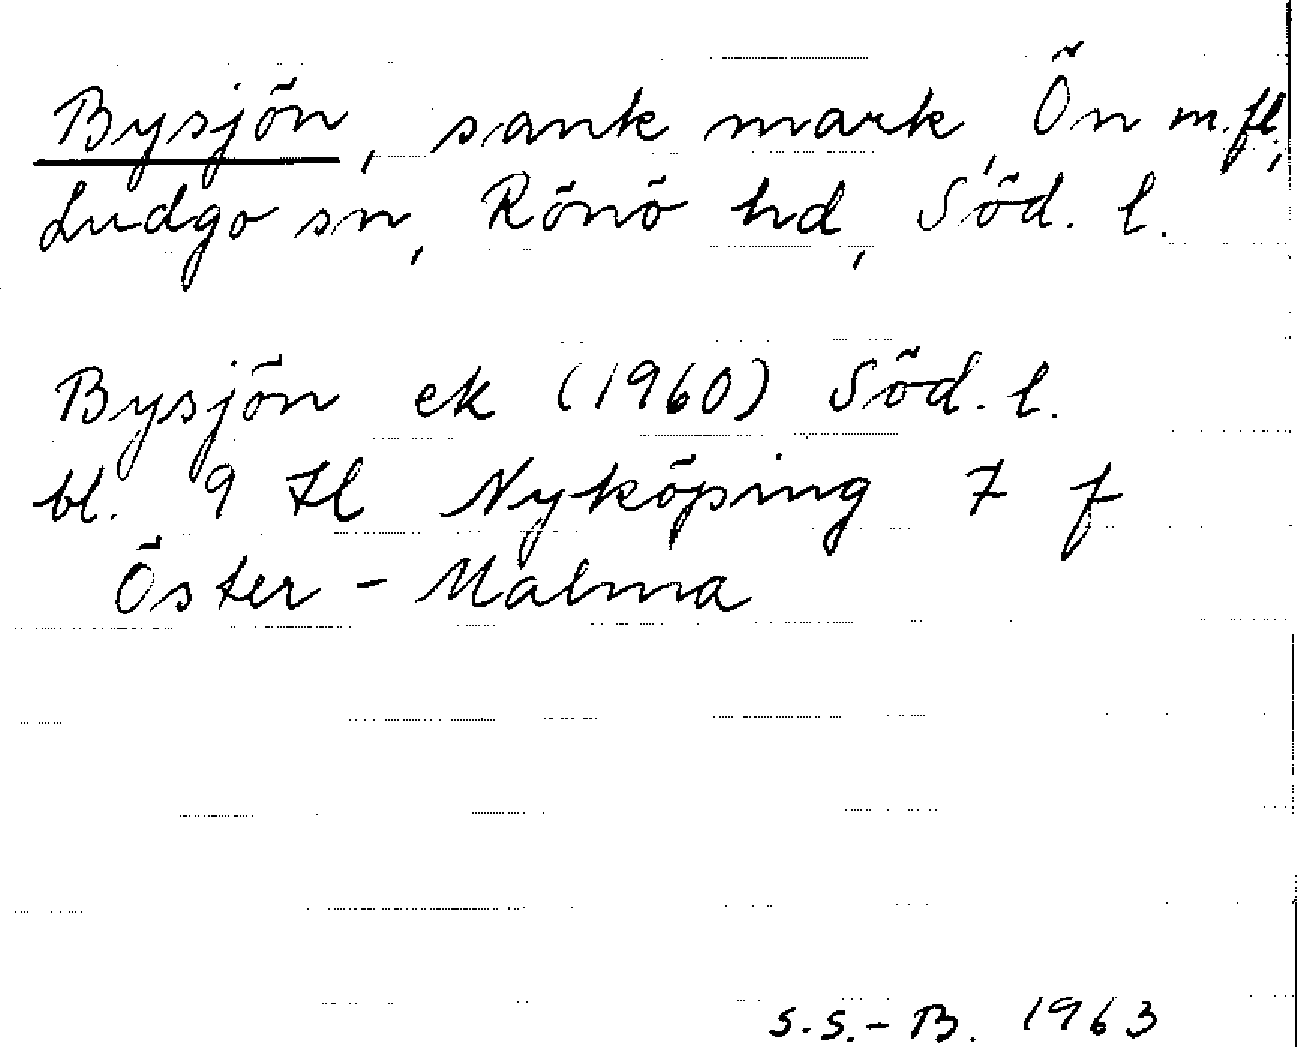 Bysjön, sank mark, Ön m.fl.,
Ludgo sn, Rönö hd, Söd. l.
Bysjön ek (1960) Söd. l.
bl. 9 H Nyköping 7 f
Öster-Malma
S.S.-B. 1963